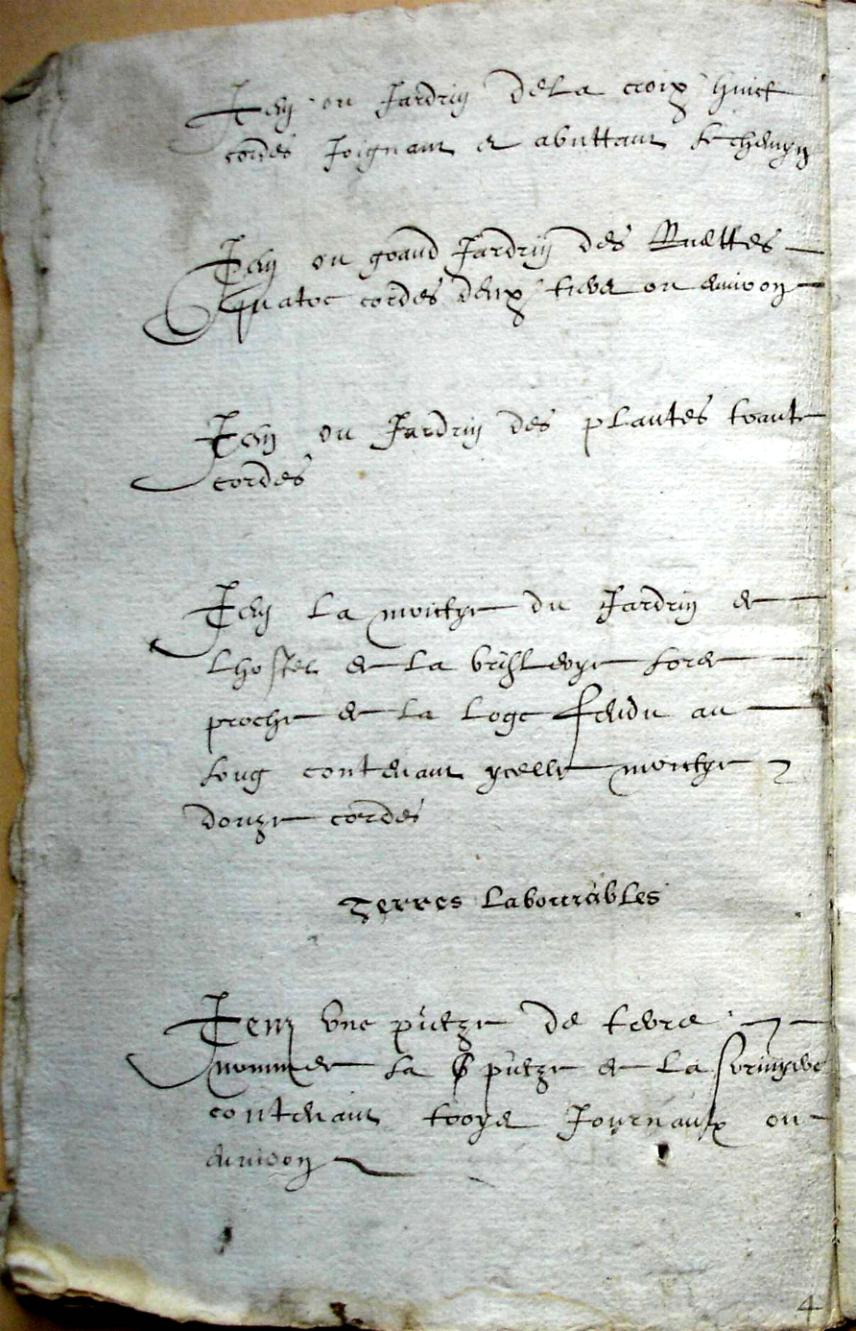 Item ou Jardrin de la croix huict
cordes Joignant et abuttant le chemyn
Item ou grand Jardrin des Ruettes
quatoe cordes deux tiers ou environ
Item ou Jardrin des plantes trante
cordes
Item la moictye du Jardrin de
lhostel de la
proche de la loge fendu au
long contenant ycelle moictye
douze cordes
Terres labourables
Item une piecze de terre
nommee la piecze de la
contenant troys Journaulx ou
environ
4